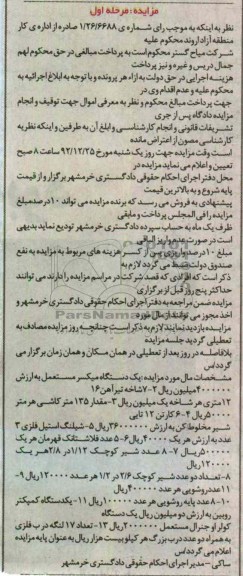 مزایده: مرحله اول
نظر به اینکه به موجب رای شماره ی ۱/۲۶/۶۶۸۸ صادره از اداره ی کار
منطقه آزاد اروند محکوم علیه
شرکت میاح گستر محکوم است به پرداخت مبالغی در حق محکوم لهم
جمال دریس و غیره و نیز پرداخت
هزینه اجرایی در حق دولت به ازاء هر پرونده و با توجه به ابلاغ اجرائیه به
محکوم علیه و عدم اقدام وی در
جهت پرداخت مبالغ محکوم و نظر به معرفی اموال جهت توقیف و انجام
مزایده دادگاه پس از جری
تشریفات قانونی و انجام کارشناسی و ابلاغ آن به طرفین و اینکه نظریه
کارشناسی مصون از اعتراض مانده
است وقت مزایده جهت روز یک شنبه مورخ ۹۲/۱۲/۲۵ ساعت ۸ صبح
تعیین و اعلام می نماید مزایده در
محل دفتر اجرای احکام حقوقی دادگستری خرمشهر برگزار و از قیمت
پایه شروع و به بالاترین قیمت
پیشنهادی به فروش می رسد که برنده مزایده می تواند ۱۰ درصد مبلغ
مزایده را فی المجلس پرداخت و مابقی
ظرف یک ماه به حساب سپرده دادگستری خرمشهر تودیع نماید بدیهی
است در صورت عدم واریز الباقی
مبلغ ۱۰ درصد واریزی پس از کسر هزینه های مربوط به مزایده به نفع
صندوق دولت ضبط می گردد لازم به
ذکر است که افرادی که قصد شرکت در مراسم مزایده را دارند می توانند
حداکثر پنج روز قبل از برگزاری
مزایده ضمن مراجعه به دفتر اجرای احکام حقوقی دادگستری خرمشهر و
اخذ مجوز می توانند از مال مورد
مزایده بازدید نمایند لازم به ذکر است چنانچه روز مزایده مصادف به
تعطیلی گردید جلسه مزایده
بلافاصله در روز بعد از تعطیلی در همان مکان و همان زمان برگزار می
گردد/س
مشخصات مال مورد مزایده: یک دستگاه میکسر مستعمل به ارزش
۴۰۰۰۰۰۰ میلیون ریال ۲-۷ شاخه تیر آهن ۱۶
۱۲ متری هر شاخه یک میلیون ریال ۳-مقدار ۱۳۵ متر کاشی هر متر
۵۰۰۰۰ ریال ۴-۶ کارتن ۱۲ تایی
شیر مخلوط کن به ارزش ۳۶۰۰۰۰۰ ریال ۵-شیلنگ استیل فلزی ۳
عدد به ارزش هر یک ۴۰۰۰۰ ریال ۶-۵ عدد فلاشتانک قهرمان هر یک
۵۰۰۰۰ ریال ۷-۸ عدد شیر کوچک ۱/۱۲ در ۲/۸ هر یک
۱۲۰۰۰۰ ریال
۸-تعداد دو عدد شیر کوچک ۲/۶ در ۱/۲ هر عدد ۱۲۰۰۰۰ ریال ۹-
۱۱ عدد روشویی هر عدد ۴۰۰۰۰۰ ریال
۱۰-۸ عدد پایه روشویی هر عدد ۱۰۰۰۰۰ ریال ۱۱-یکدستگاه کمپکتر
روبین به ارزش دو میلیون ریال یک دستگاه
کولر او جنرال مستعمل ۲۰۰۰۰۰۰ ریال ۱۳-تعداد ۱۷ لنگه درب فلزی
به همراه دو عدد درب بزرگ هر کیلو بیست هزار ریال به عنوان پایه مزایده
اعلام می گردد/س
ساکی-مدیر اجرای احکام حقوقی دادگستری خرمشهر